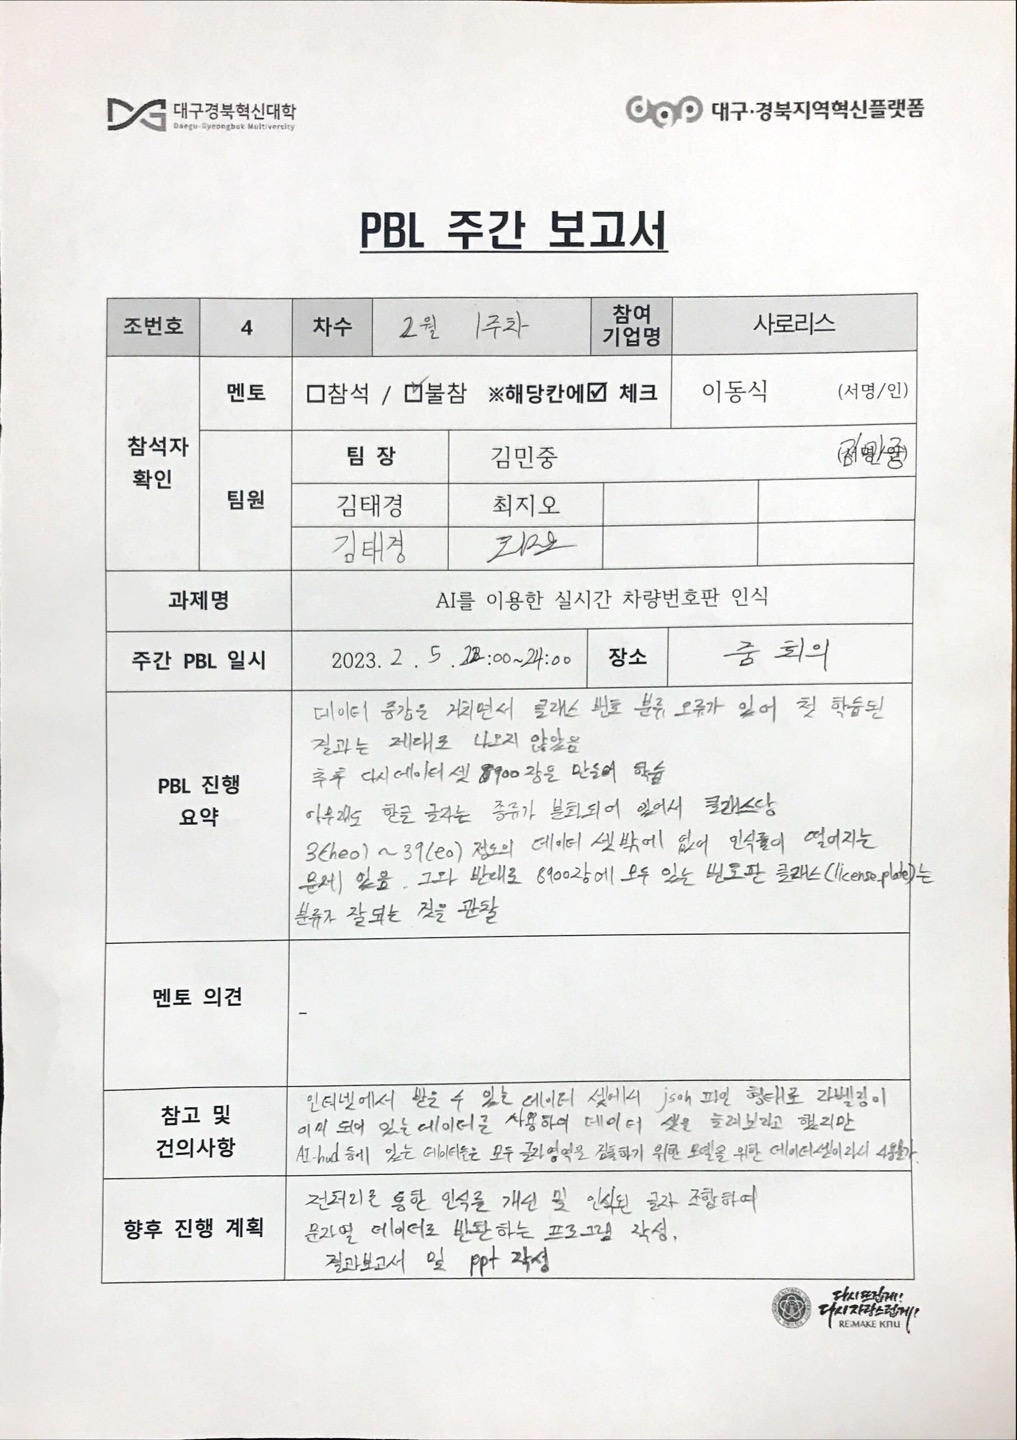 대구경북혁신대학
Daegu-Gyeongbuk Multiversity
dgp 대구·경북지역혁신플랫폼
PBL 주간 보고서
조번호 4 차수 2월 1주차 참여 기업명 사로리스
참석자 확인
멘토 □참석 / ☑불참 ※해당칸에☑ 체크 이동식 (서명/인)
팀원
팀 장 김민중 (서명/인) 김민중
김태경 최지오
김태경 최지오
과제명 AI를 이용한 실시간 차량번호판 인식
주간 PBL 일시 2023. 2 . 5 . 22:00~24:00 장소 줌 회의
PBL 진행 요약
데이터 증강을 거치면서 클래스 번호 분류 오류가 있어 첫 학습된
결과는 제대로 나오지 않았음
추후 다시 데이터 셋 8900장을 만들어 학습
아무래도 한글 글자는 종류가 분화되어 있어서 클래스당
3(heo) ~ 39(eo) 정도의 데이터 셋밖에 없어 인식률이 떨어지는
문제 있음. 그와 반대로 8900장에 모두 있는 번호판 클래스(license_plate)는
분류가 잘되는 것을 관찰
멘토 의견
-
참고 및 건의사항
인터넷에서 받을 수 있는 데이터 셋에서 json 파일 형태로 라벨링이
이미 되어 있는 데이터를 사용하여 데이터 셋을 늘려보려고 했지만
AI-hud 등에 있는 데이터들은 모두 글자영역을 검출하기 위한 모델을 위한 데이터셋이라서 사용불가
향후 진행 계획
전처리를 통한 인식률 개선 및 인식된 글자 조합하여
문자열 데이터로 반환하는 프로그램 작성.
결과보고서 및 ppt 작성
다시 뜨겁게!
다시 자랑스럽게!
RE:MAKE KNU